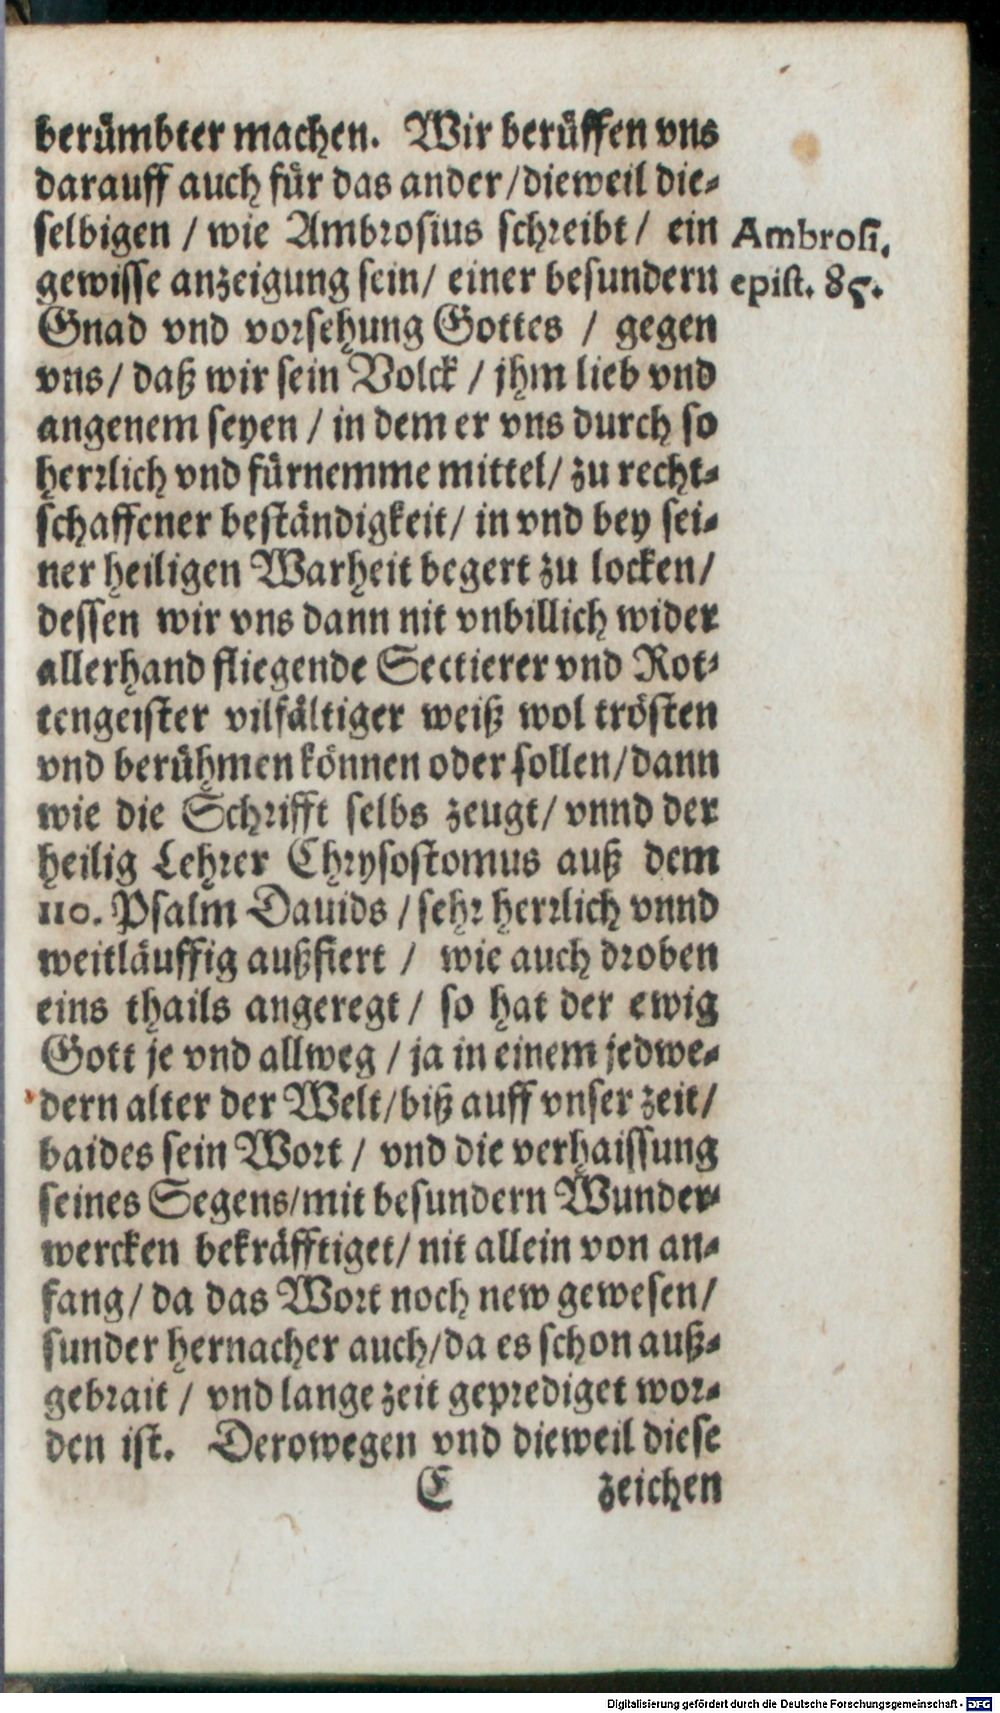 berümbter machen. Wir berüffen vns
darauff auch für das ander/dieweil die-
selbigen / wie Ambrosius schreibt / ein
Ambrosi.
gewisse anzeigung sein/ einer besundern
epist. 85.
Gnad vnd vorsehung Gottes / gegen
vns / daß wir sein Volck / jhm lieb vnd
angenem seyen / in dem er vns durch so
herrlich vnd fürnemme mittel/ zu recht-
schaffener beständigkeit/ in vnd bey sei-
ner heiligen Warheit begert zu locken/
dessen wir vns dann nit vnbillich wider
allerhand fliegende Sectierer vnd Rot-
tengeister vilfältiger weiß wol trösten
vnd berühmen können oder sollen/dann
wie die Schrifft selbs zeugt/ vnnd der
heilig Lehrer Chrysostomus auß dem
110. Psalm Dauids / sehr herrlich vnnd
weitläuffig außfiert / wie auch droben
eins thails angeregt / so hat der ewig
Gott je vnd allweg / ja in einem jedwe-
dern alter der Welt/biß auff vnser zeit/
baides sein Wort / vnd die verhaissung
seines Segens/mit besundern Wunder-
wercken bekräfftiget/ nit allein von an-
fang/ da das Wort noch new gewesen/
sunder hernacher auch/da es schon auß-
gebrait / vnd lange zeit geprediget wor-
den ist. Derowegen vnd dieweil diese
C zeichen
Digitalisierung gefördert durch die Deutsche Forschungsgemeinschaft - DFG